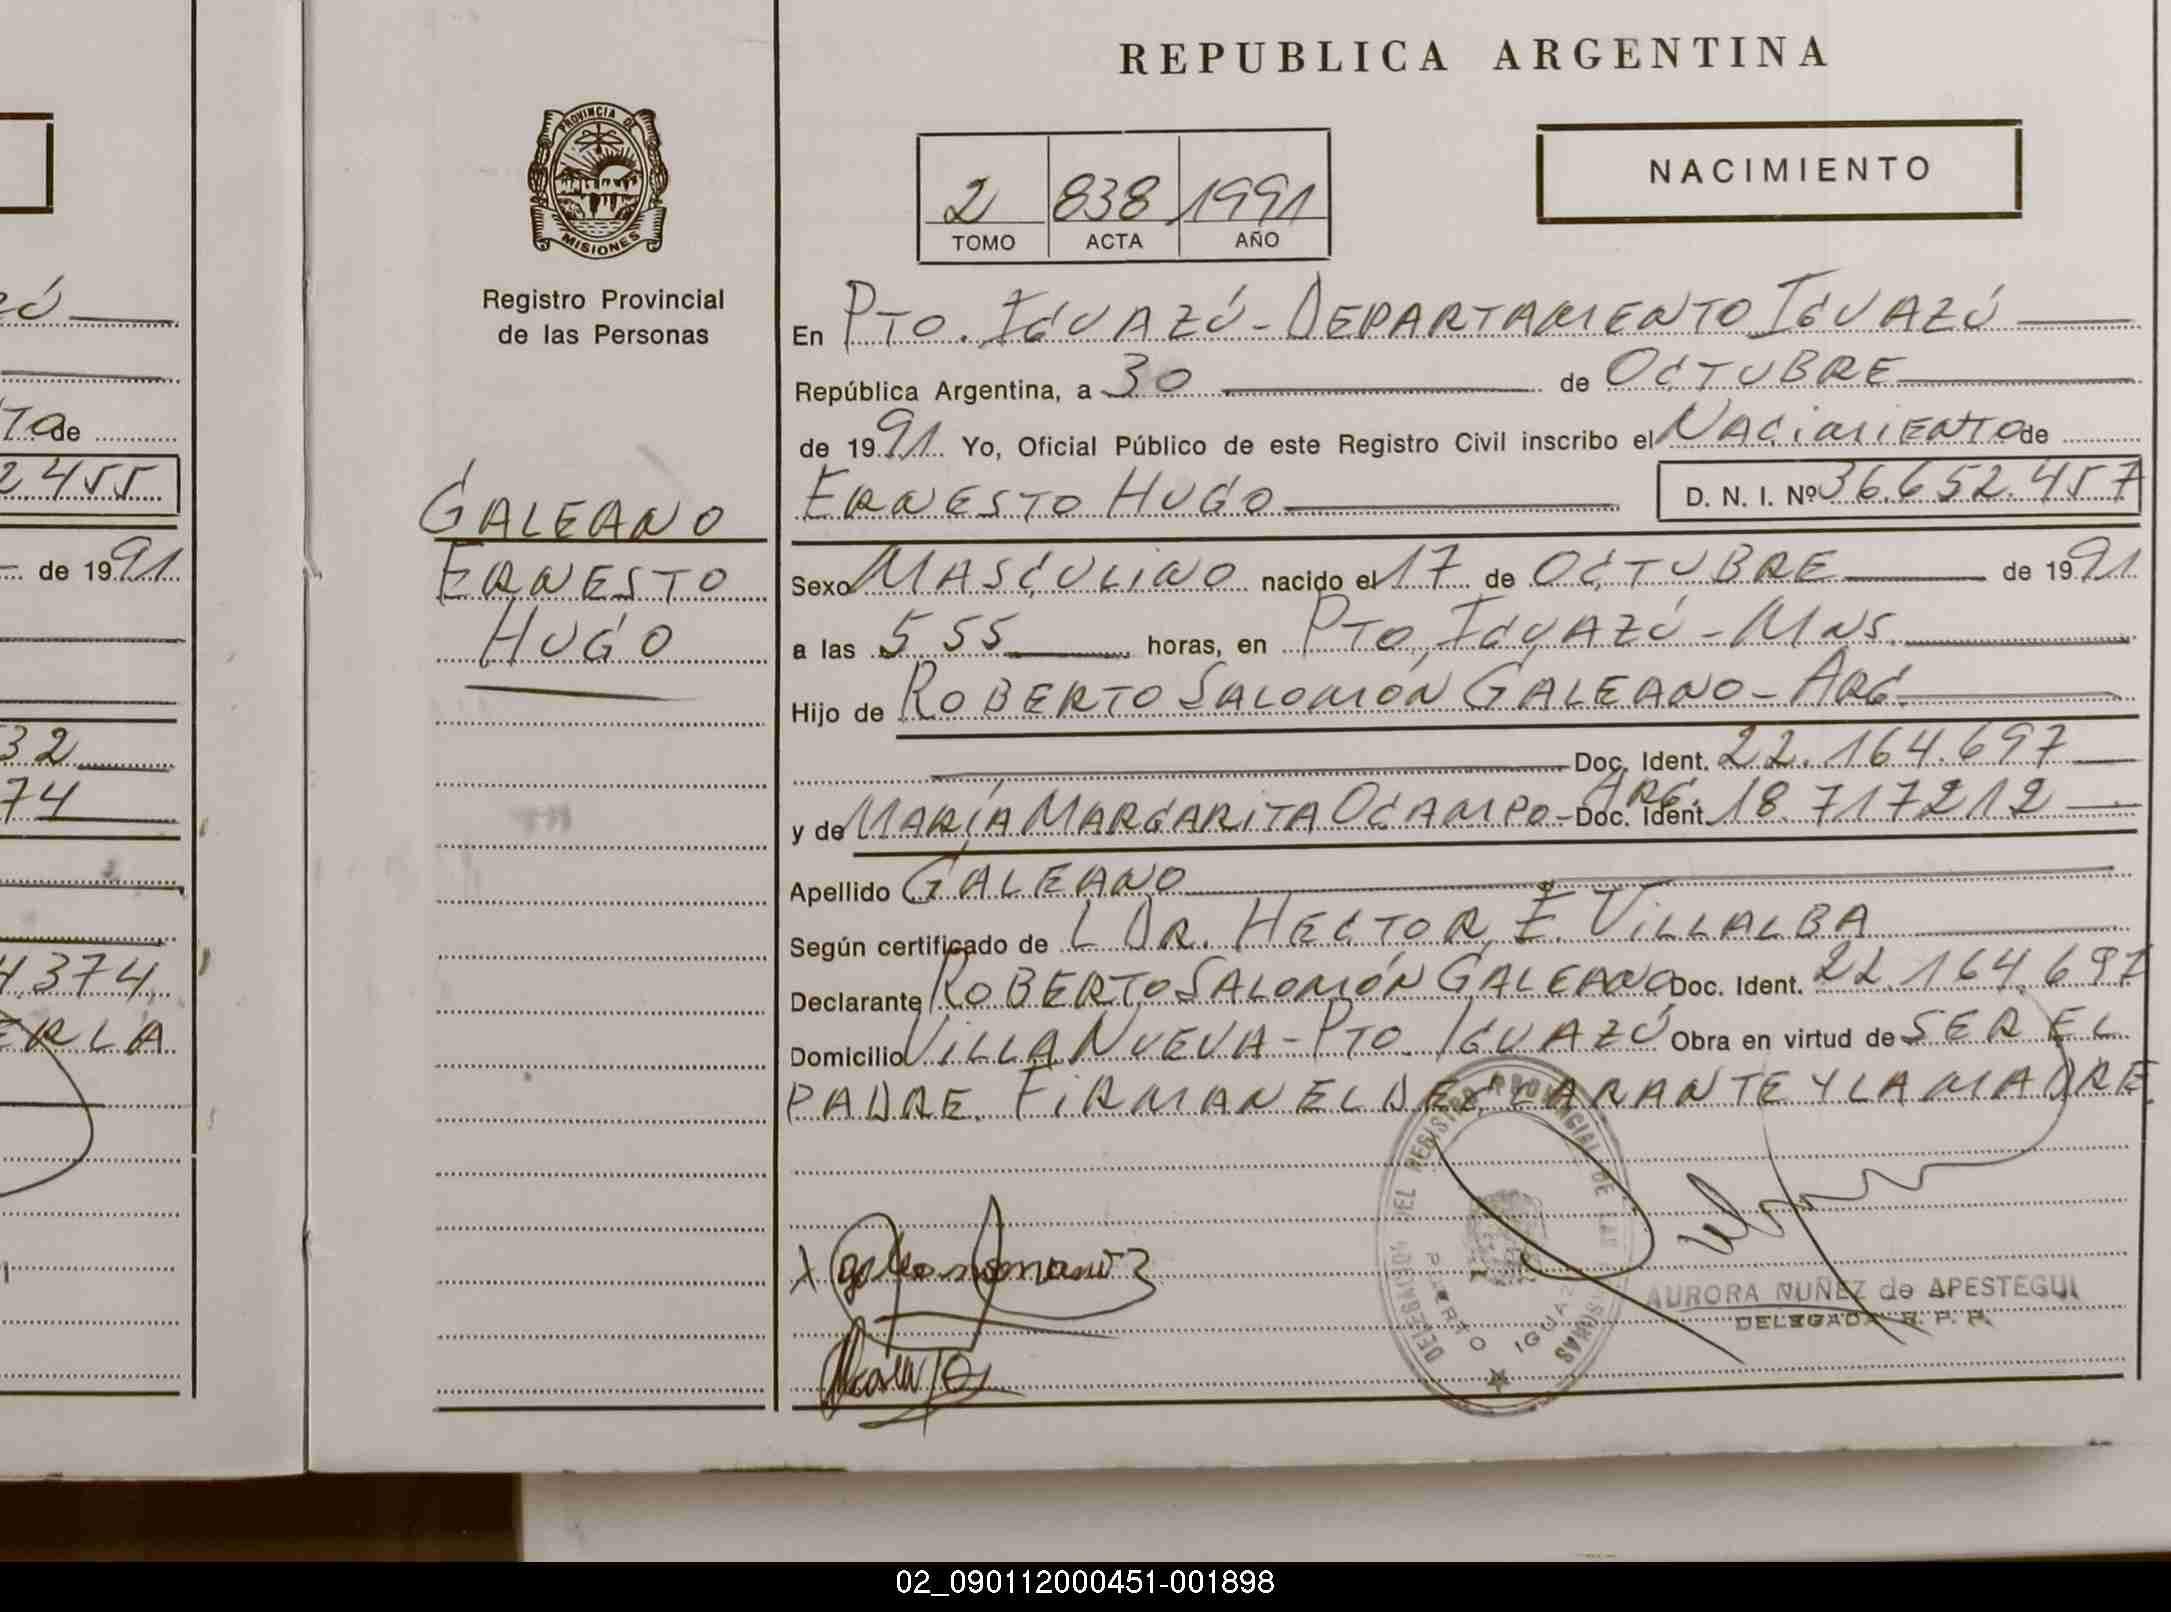 REPUBLICA ARGENTINA
PROVINCIA DE
MISIONES
Registro Provincial
de las Personas
2 838 1991
TOMO ACTA AÑO
NACIMIENTO
En PTO. IGUAZÚ - DEPARTAMENTO IGUAZÚ
República Argentina, a 30 de OCTUBRE
de 1991 Yo, Oficial Público de este Registro Civil inscribo el NACIMIENTO de
ERNESTO HUGO D. N. I. Nº 36.652.457
GALEANO
ERNESTO
HUGO
Sexo MASCULINO nacido el 17 de OCTUBRE de 1991
a las 5 55 horas, en PTO. IGUAZÚ - MNS.
Hijo de ROBERTO SALOMÓN GALEANO - ARG.
Doc. Ident. 22.164.697
ARG.
y de MARÍA MARGARITA OCAMPO - Doc. Ident. 18.717212
Apellido GALEANO
Según certificado de L DR. HECTOR E. VILLALBA
Declarante ROBERTO SALOMÓN GALEANO Doc. Ident. 22.164.697
Domicilio VILLA NUEVA - PTO. IGUAZÚ Obra en virtud de SER EL
PADRE. FIRMAN EL DECLARANTE Y LA MADRE.
DELEGACION DEL REGISTRO PROVINCIAL DE LAS PERSONAS
PUERTO IGUAZU
AURORA NUÑEZ de APESTEGUI
DELEGADA R. P. P.
de
2455
de 1991
32
74
4.374
ERLA
02_090112000451-001898